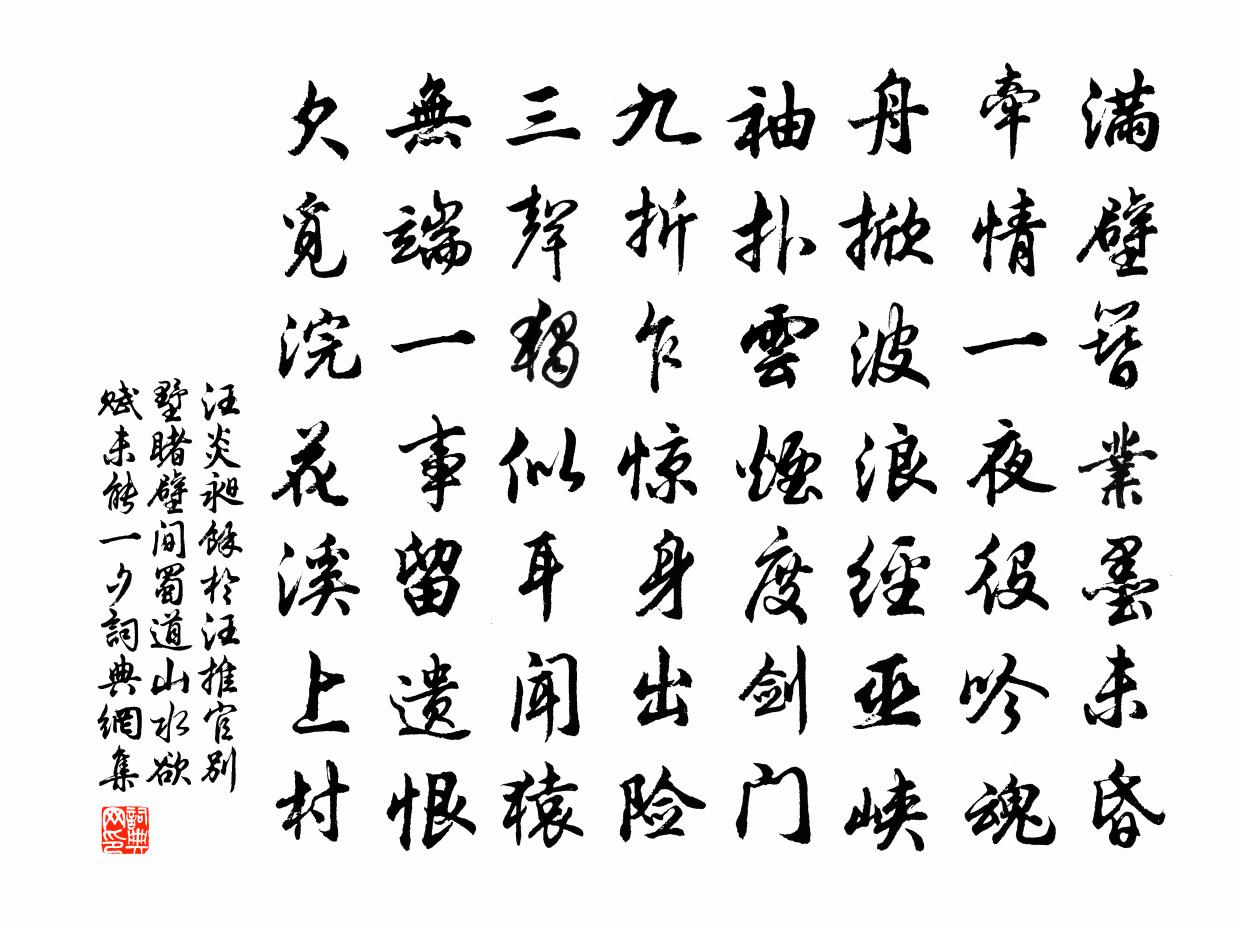 满壁簪業墨未昏
牽情一夜役吟魂
舟掀波浪經巫峡
袖扑雲煙度剑门
九折乍惊身出险
三聲獨似耳闻猿
無端一事留遗恨
欠觅浣花溪上村
汪炎昶餘於汪推官别
墅睹壁间蜀道山水欲
赋未能一夕詞典網集
詞典
网印